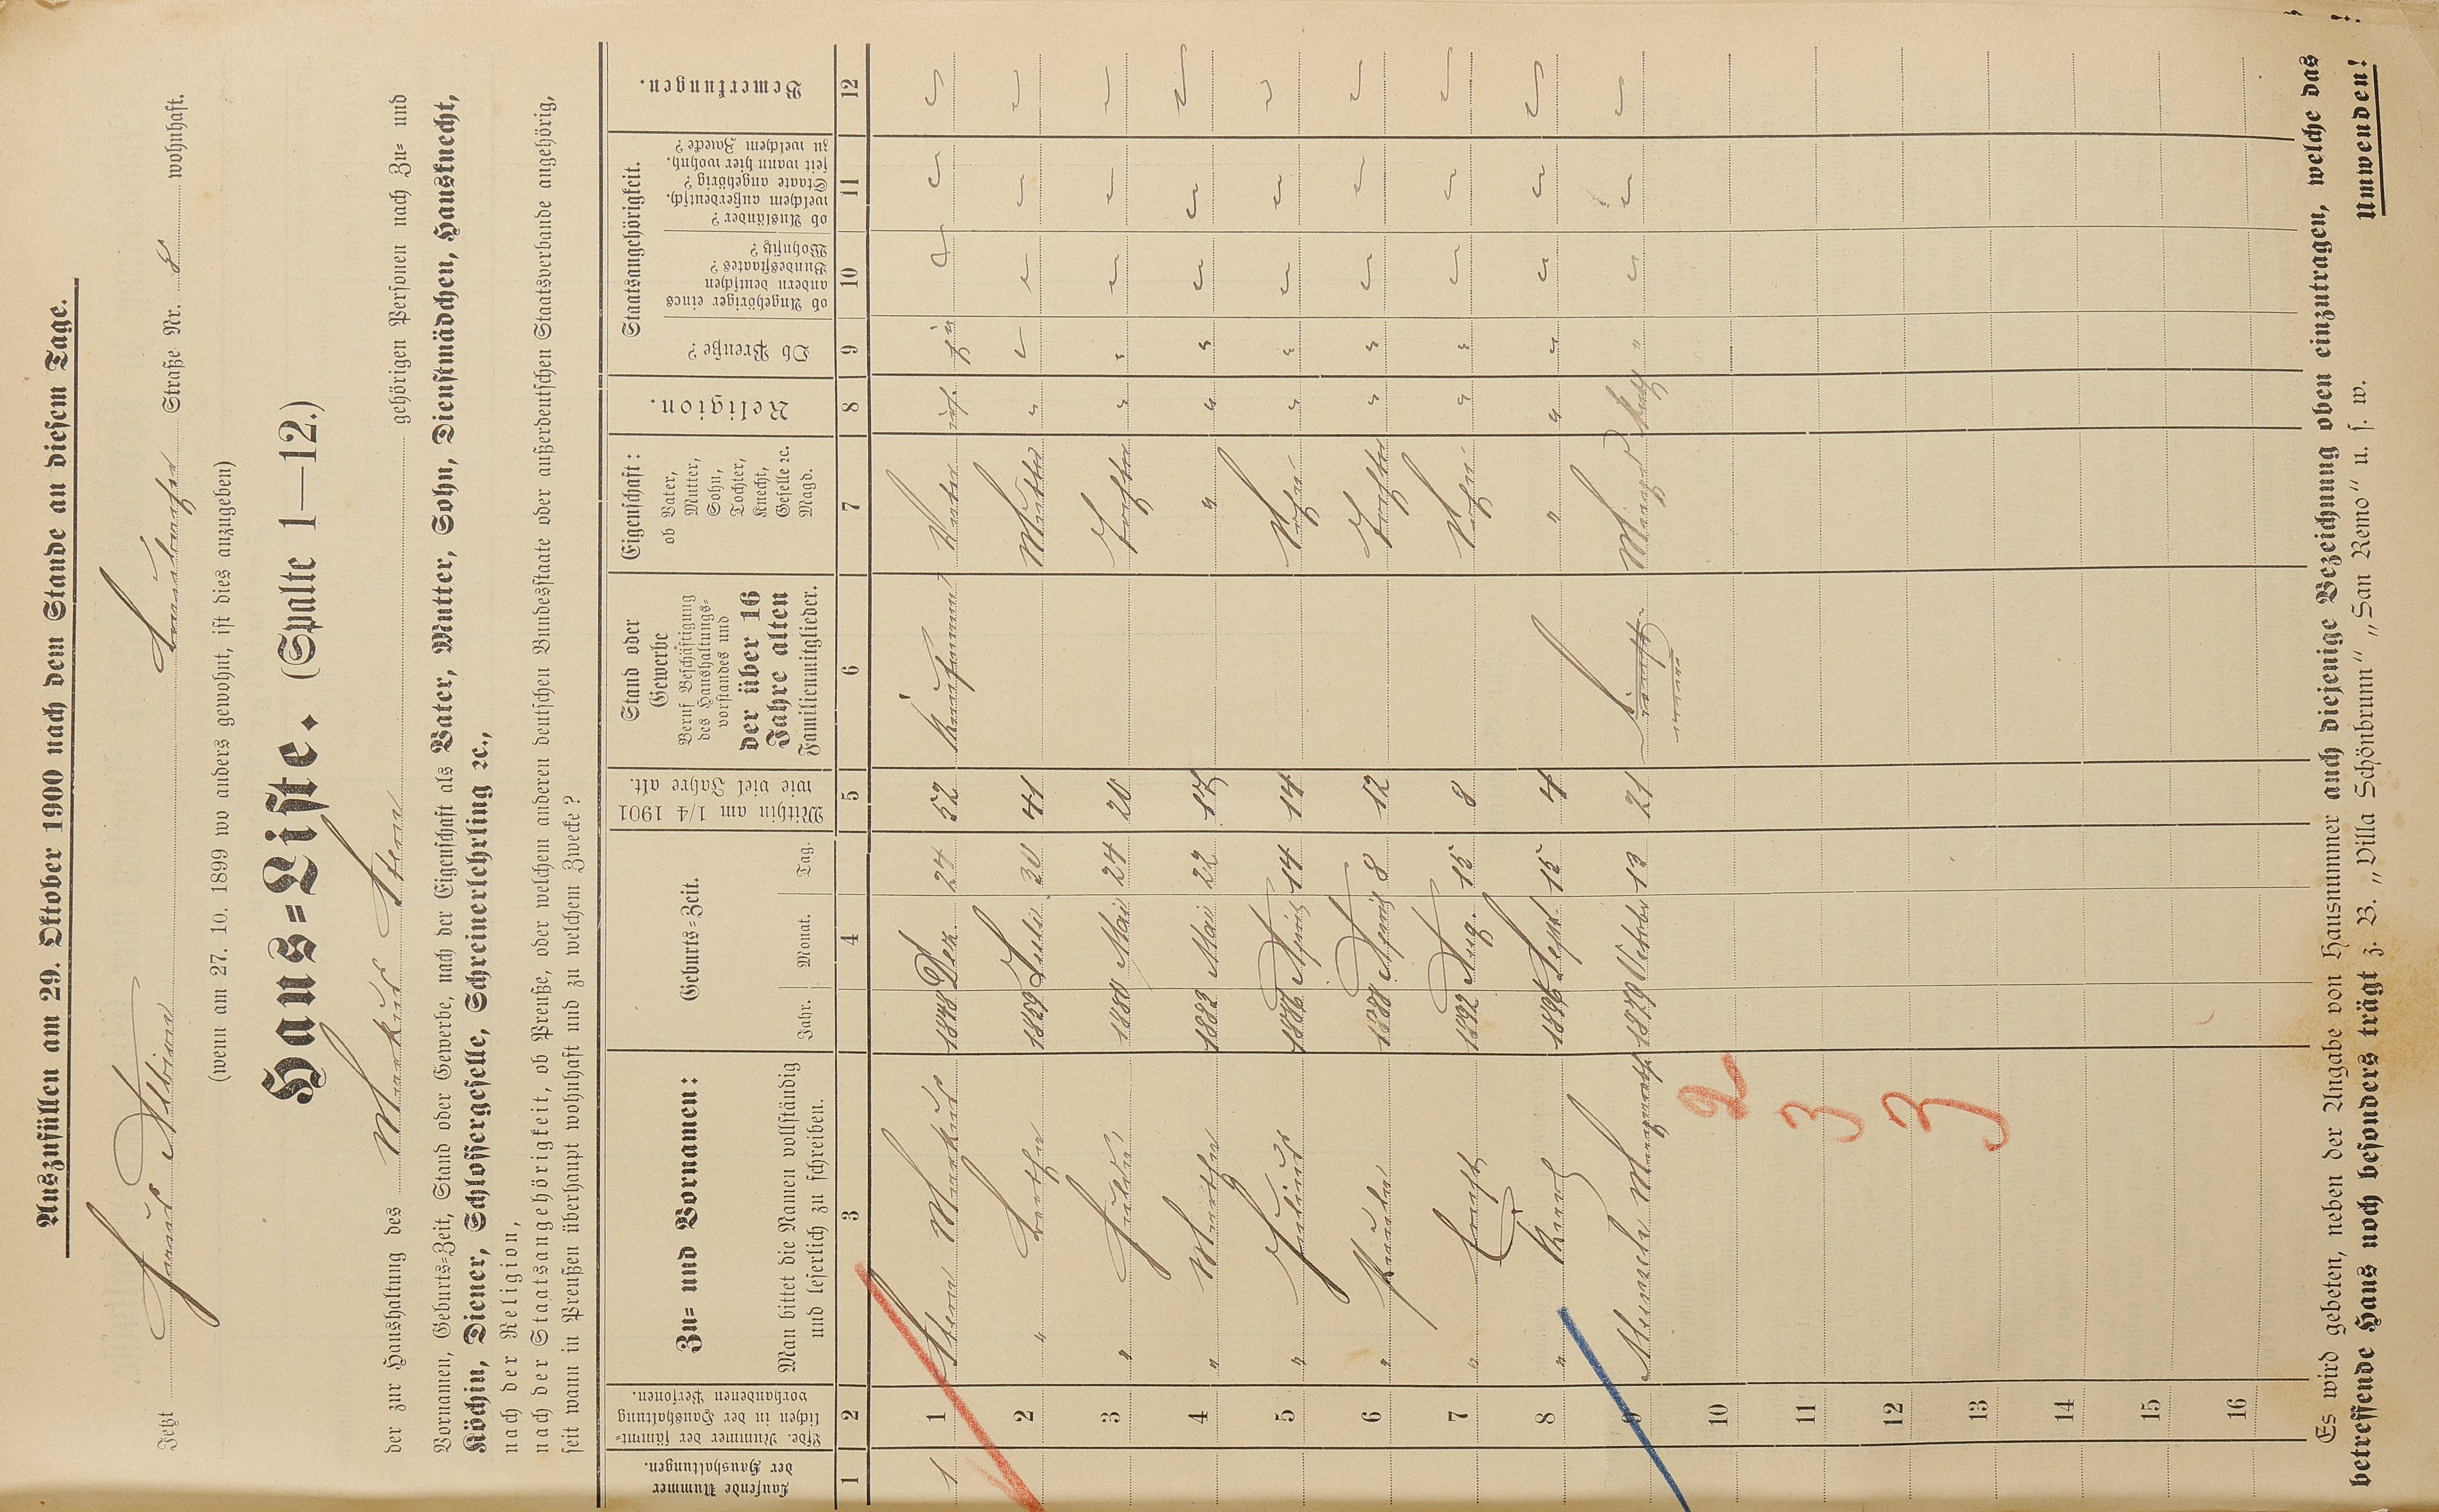 Auszufüllen am 29. Oktober 1900 nach dem Stande an diesem Tage.
Jetzt Haus Albion Straße Nr. 8 wohnhaft.
(wenn am 27. 10. 1899 wo anders gewohnt, ist dies anzugeben)
Haus=Liste. (Spalte 1—12.)
der zur Haushaltung des Markus Stern gehörigen Personen nach Zu= und
Vornamen, Geburts=Zeit, Stand oder Gewerbe, nach der Eigenschaft als Vater, Mutter, Sohn, Dienstmädchen, Hausknecht,
Köchin, Diener, Schlossergeselle, Schreinerlehrling ꝛc.,
nach der Religion,
nach der Staatsangehörigkeit, ob Preuße, oder welchem anderen deutschen Bundesstaate oder außerdeutschen Staatsverbande angehörig,
seit wann in Preußen überhaupt wohnhaft und zu welchem Zwecke?
Laufende Nummer der Haushaltungen.
Lfde. Nummer der sämmt=lichen in der Haushaltung vorhandenen Personen.
Zu= und Vornamen:
Man bittet die Namen vollständig und leserlich zu schreiben.
Geburts=Zeit.
Jahr. Monat. Tag.
Mithin am 1/4 1901 wie viel Jahre alt.
Stand oder Gewerbe
Beruf Beschäftigung des Haushaltungs=vorstandes und
der über 16 Jahre alten
Familienmitglieder.
Eigenschaft:
ob Vater, Mutter, Sohn, Tochter, Knecht, Geselle ꝛc. Magd.
Religion.
Staatsangehörigkeit.
Ob Preuße?
ob Angehöriger eines andern deutschen Bundesstaates? Wohnsitz?
ob Ausländer? welchem außerdeutsch. Staate angehörig? seit wann hier wohnh. zu welchem Zwecke?
Bemerkungen.
1 2 3 4 5 6 7 8 9 10 11 12
1 1 Stern Markus 1848 Dez. 24 52 Kaufmann Vater isr. ja
2 " Bertha 1859 Juli 30 41 Mutter "
3 " 1880 Mai 24 20 Tochter " "
4 " Martha 1883 Mai 22 17 " " "
5 " Julius 1886 April 14 14 Sohn " "
6 " Paula 1888 April 8 12 Tochter " "
7 " Ernst 1892 Aug. 15 8 Sohn " "
8 " Karl 1896 Sept. 15 4 " " "
9 Margareth 1879 Oktober 13 21 Magd "
10
2
11
3
12
3
13
14
15
16
Es wird gebeten, neben der Angabe von Hausnummer auch diejenige Bezeichnung oben einzutragen, welche das
betreffende Haus noch besonders trägt z. B. „Villa Schönbrunn“ „San Remo“ u. s. w.
Umwenden!